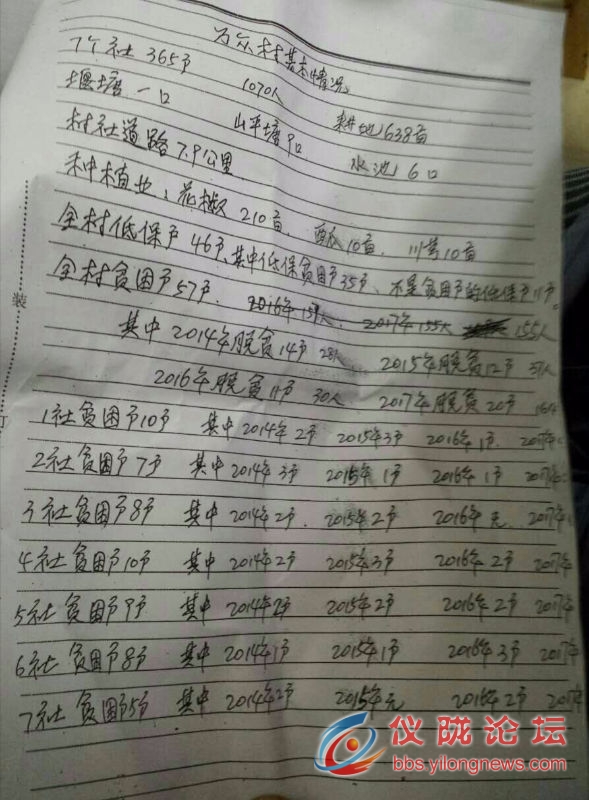 万众村基本情况
7个社 365户 1070人 耕地1638亩
堰塘一口 山平塘9口 水池6口
村社道路7.9公里
种植业:花椒210亩、 10亩、川芎10亩
全村低保户46户、其中低保贫困户35户、不是贫困户的低保户11户。
全村贫困户57户、 2017年155人 155人
其中2014年脱贫14户 28人 2015年脱贫12户 37人
2016年脱贫11户 30人 2017年脱贫20户
1社贫困户10户 其中2014年2户 2015年3户 2016年1户、2017年
2社贫困户7户 其中2014年3户 2015年1户 2016年1户 2017年
3社贫困户8户 其中2014年2户、2015年2户 2016年无、2017年
4社贫困户10户 其中2014年2户 2015年3户 2016年2户 2017年
5社贫困户9户 其中2014年2户 2015年2户 2016年2户 2017年
6社贫困户8户 其中2014年1户 2015年1户 2016年3户 2017年
7社贫困户5户 其中2014年2户 2015年无 2016年2户 2017年
装
订
仪陇论坛
bbs.yilongnews.com